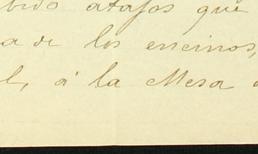 bido atajos que
a de los encinos,
l, á la Mesa